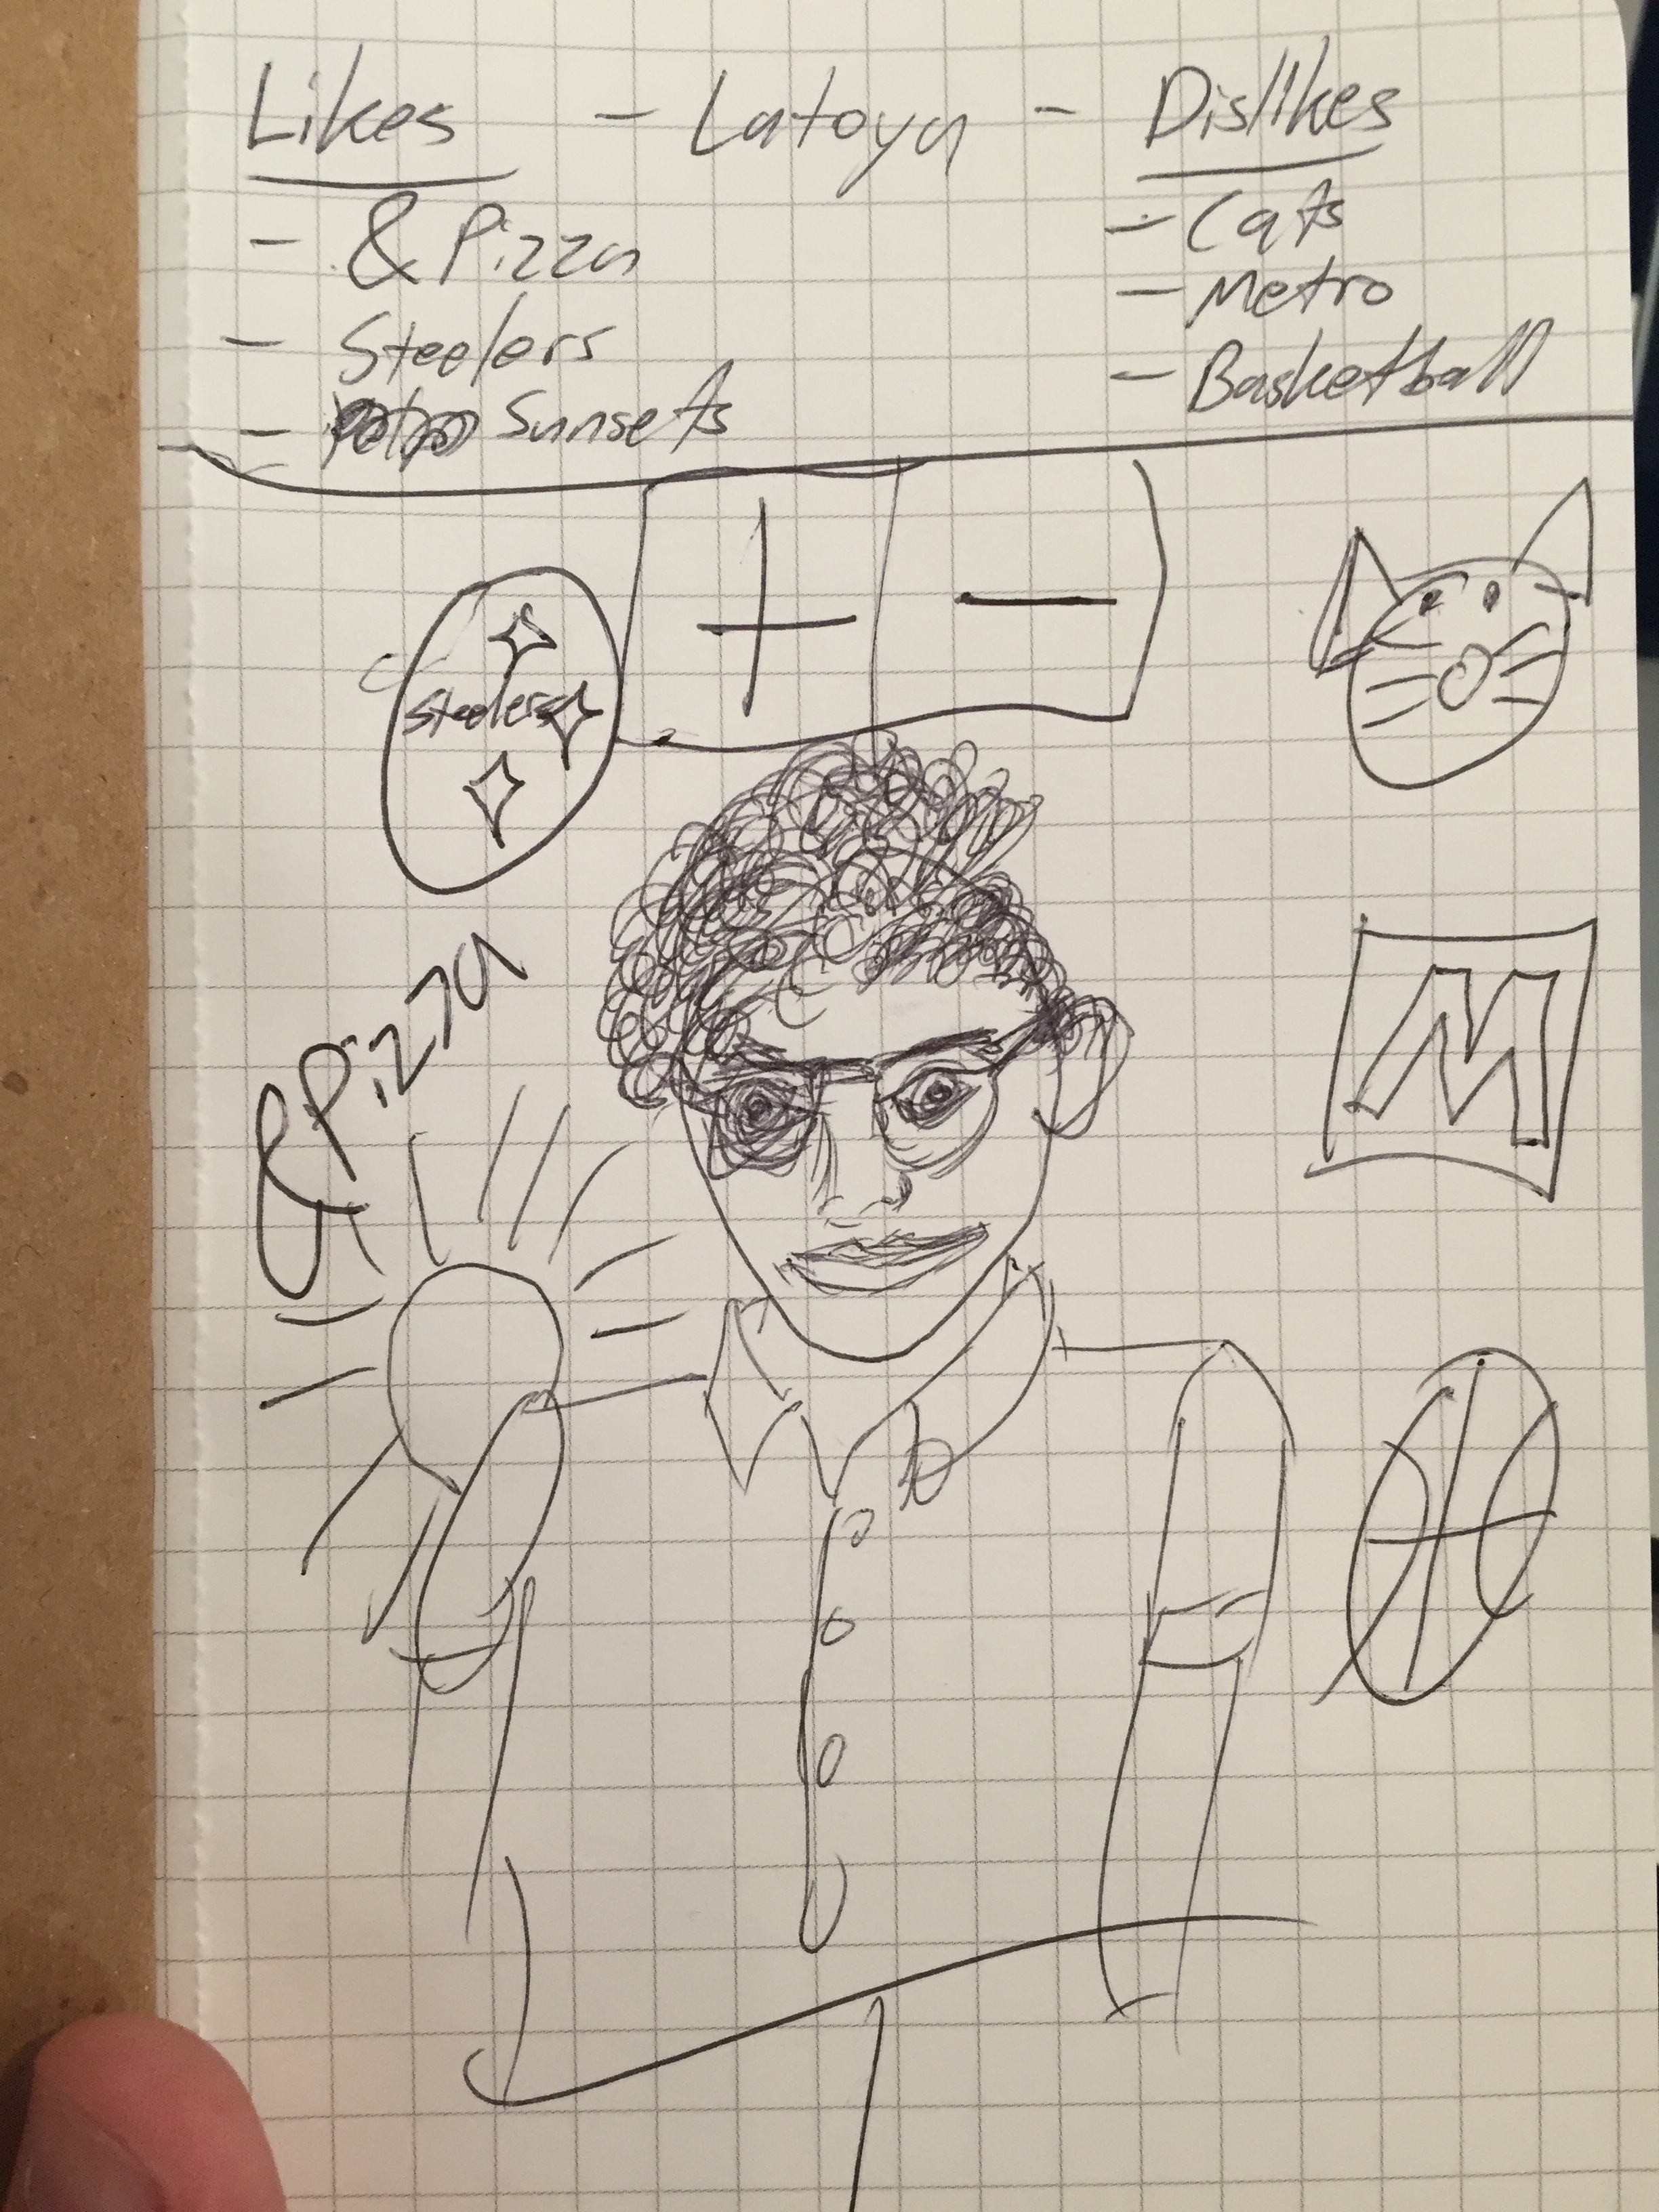 Likes - Latoya - Dislikes
- & Pizza
- Steelers
- Sunsets
- Cats
- Metro
- Basketball
+ -
Steelers
&Pizza
M